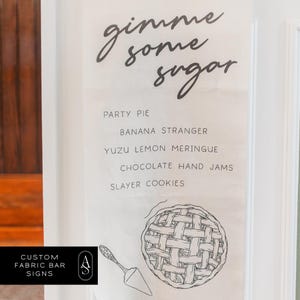 gimme
some
sugar
PARTY PIE
BANANA STRANGER
YUZU LEMON MERINGUE
CHOCOLATE HAND JAMS
SLAYER COOKIES
CUSTOM
FABRIC BAR
SIGNS